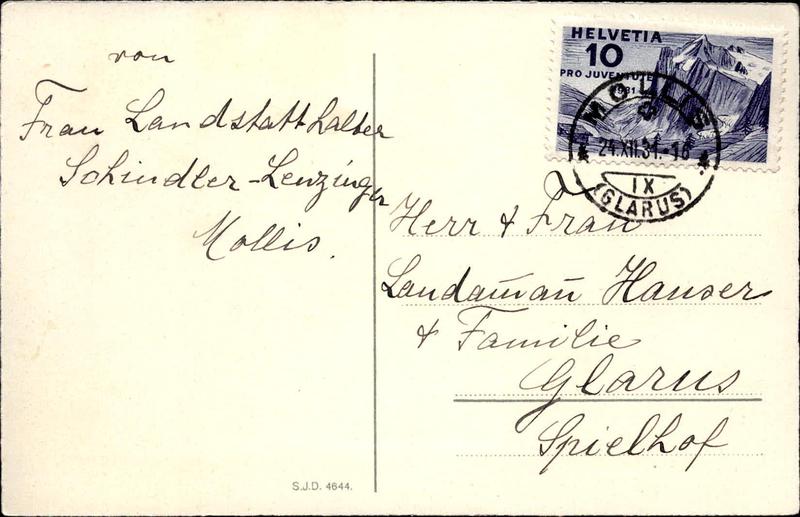 von
Frau Landstatthalter
Schindler-Lenzinger
Mollis.
HELVETIA
10
PRO JUVENTUTE
1931
MOLLIS
24.XII.31.-18
IX
(GLARUS)
Herr & Frau
Landam̄an̄ Hauser
& Familie
Glarus
Spielhof
S.J.D. 4644.